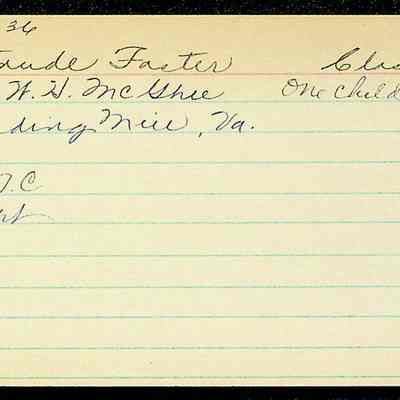 36
aude Foster Clas
W. H. McGhee One child
ding Mill, Va.
T.C